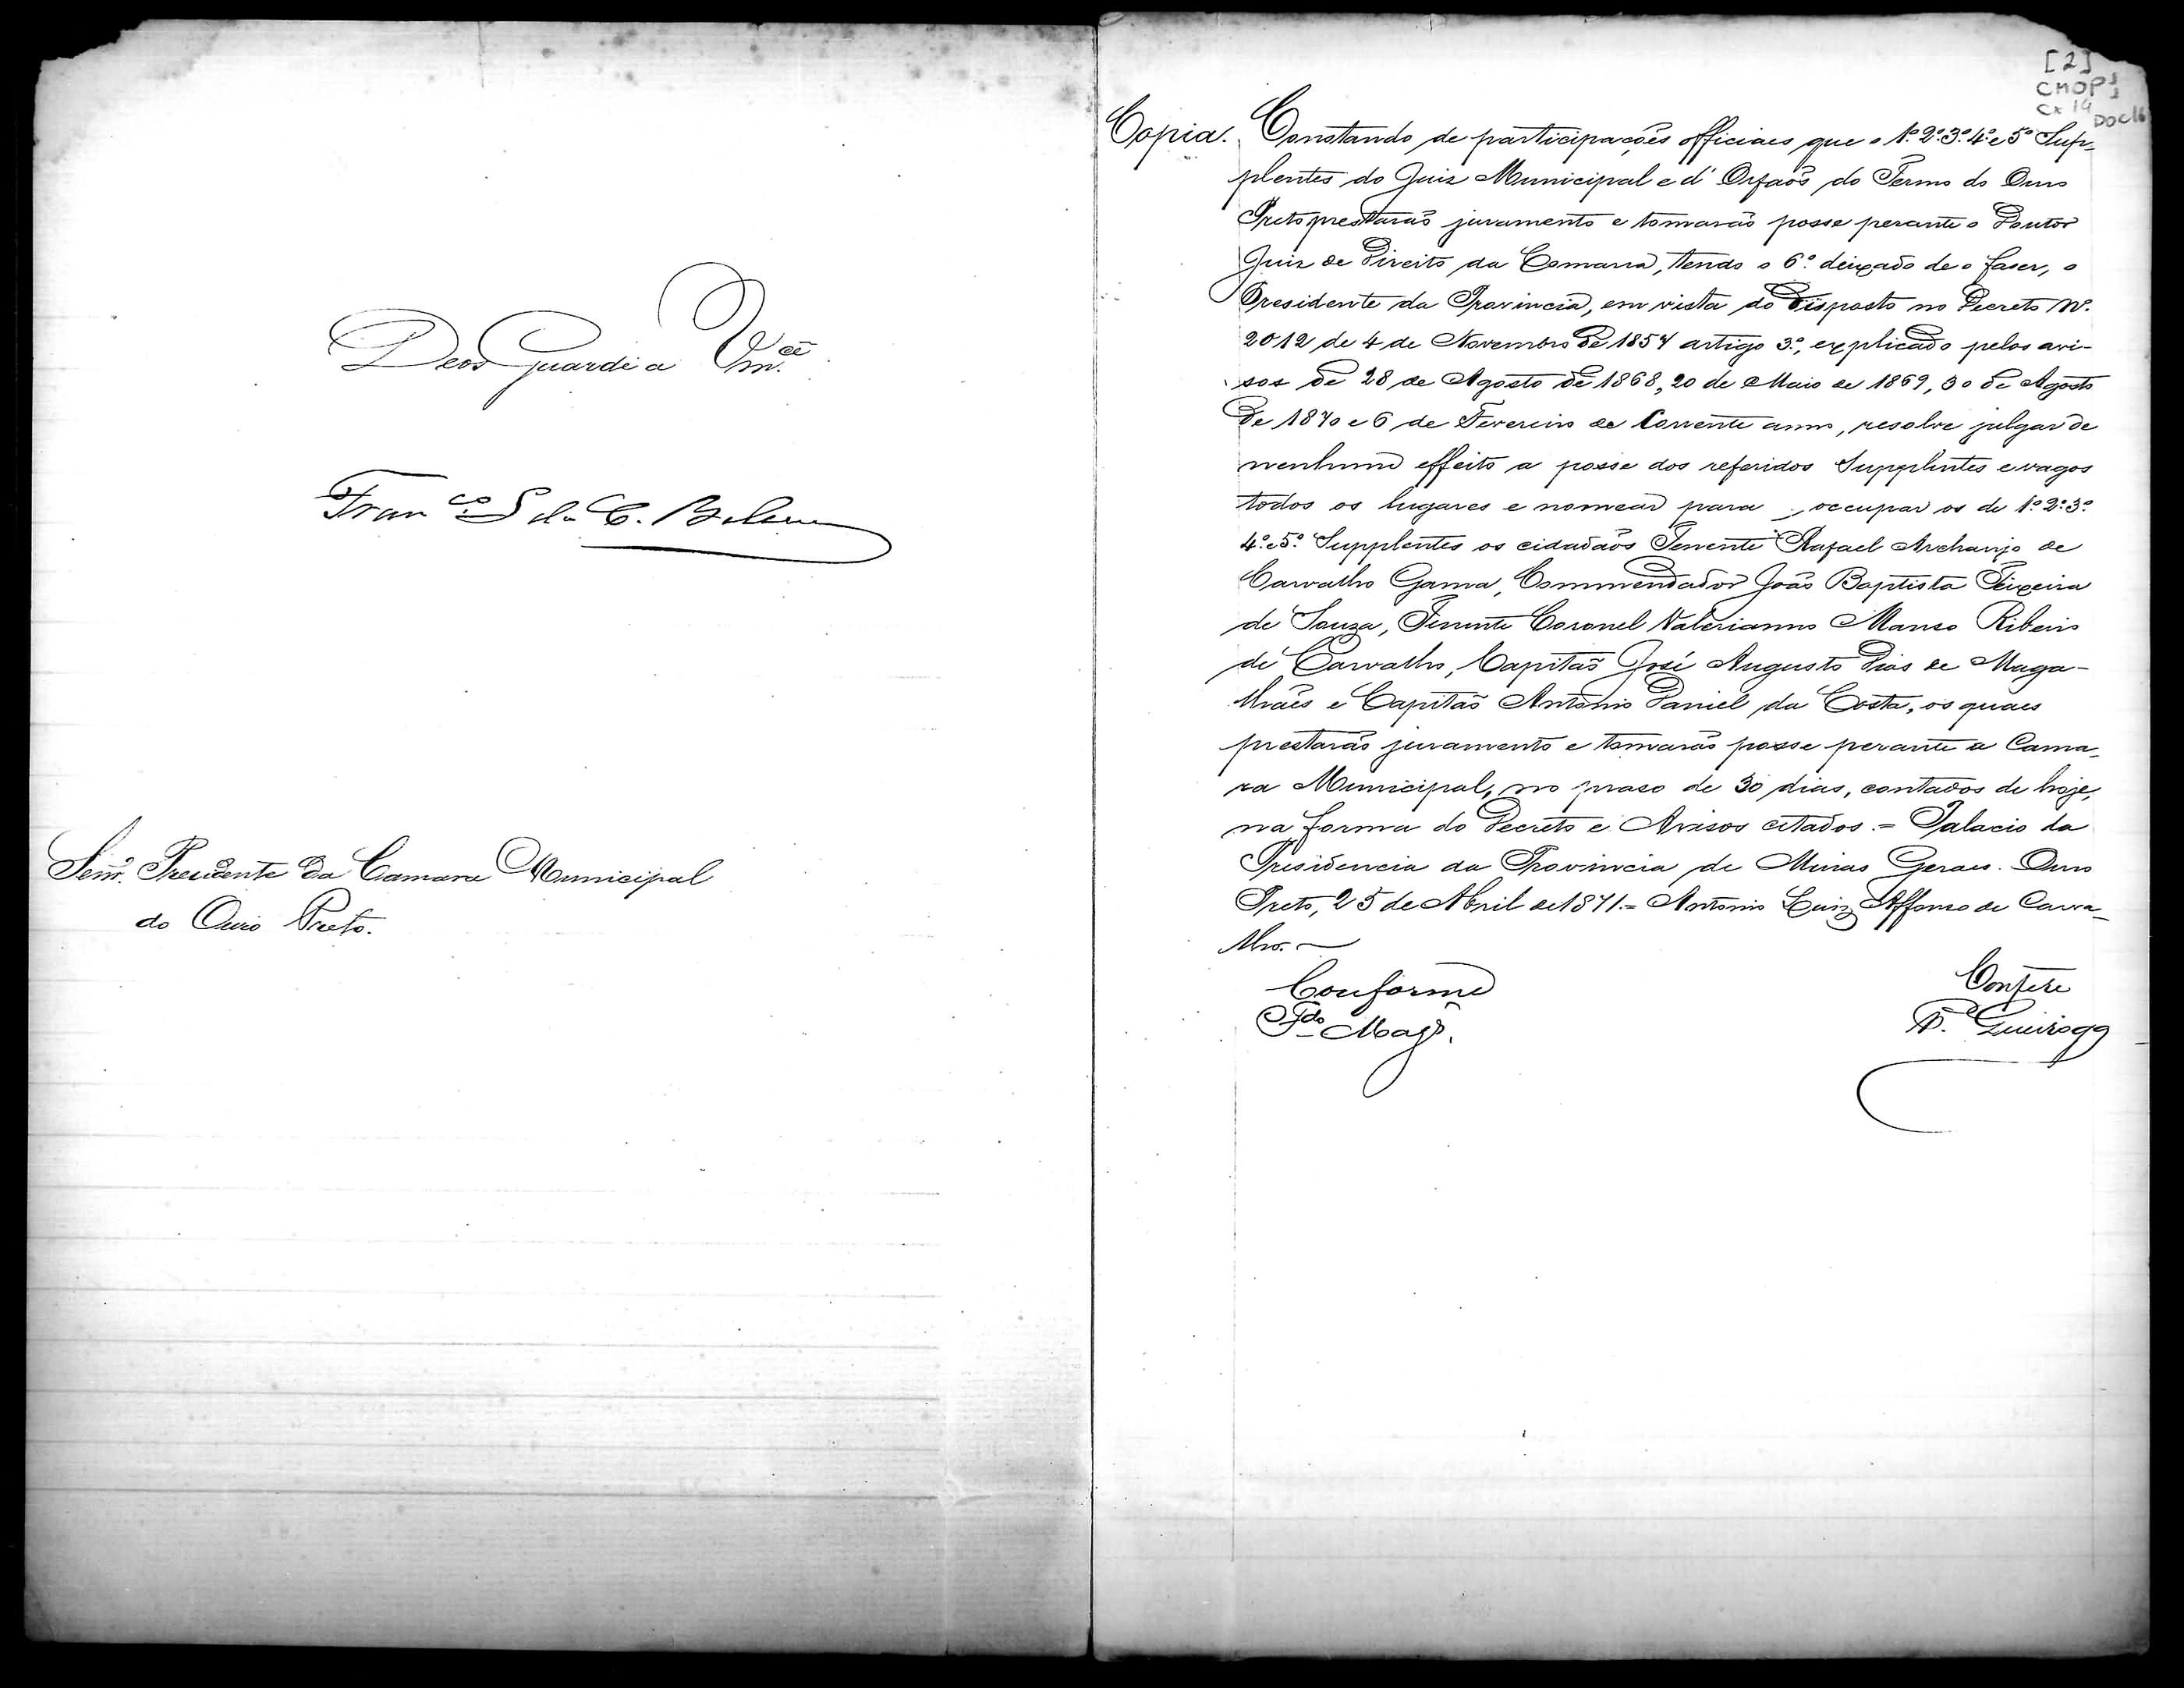 Deos Guarde a Vm.ce
Fran.co S da C. Belem
Senr. Presidente da Camara Municipal
do Ouro Preto.
[2]
CMOP
Cx 19 DOC16
Copia. Constando de participações officiaes que o 1º 2º 3º 4º e 5º Sup-
plentes do Juiz Municipal e d' Orfaõs do Termo do Ouro
Preto prestaraõ juramento e tomaraõ posse perante o Doutor
Juiz de Direito da Comarca, tendo o 6º deixado de o faser, o
Presidente da Provincia, em vista do disposto no Decreto Nº
2012 de 4 de Novembro de 1857 artigo 3º, explicado pelos avi-
sos de 28 de Agosto de 1868, 20 de Maio de 1869, 30 de Agosto
de 1870 e 6 de Fevereiro do Corrente anno, resolve julgar de
nenhum effeito a posse dos referidos Supplentes e vagos
todos os lugares e nomear para occupar os de 1º 2º 3º
4º e 5º Supplentes os cidadaõs Tenente Rafael Archanjo de
Carvalho Gama, Commendador Joaõ Baptista Teixeira
de Souza, Tenente Coronel Valerianno Manso Ribeiro
de Carvalho, Capitaõ José Augusto Dias de Maga-
lhães e Capitaõ Antonio Daniel da Costa, os quaes
prestaraõ juramento e tomaraõ posse perante a Cama-
ra Municipal, no praso de 30 dias, contados de hoje,
na forma do Decreto e Avisos citados. = Palacio da
Presidencia da Provincia de Minas Geraes. Ouro
Preto, 25 de Abril de 1871. = Antonio Luiz Affonso de Carva-
lho.
Conforme
Confere